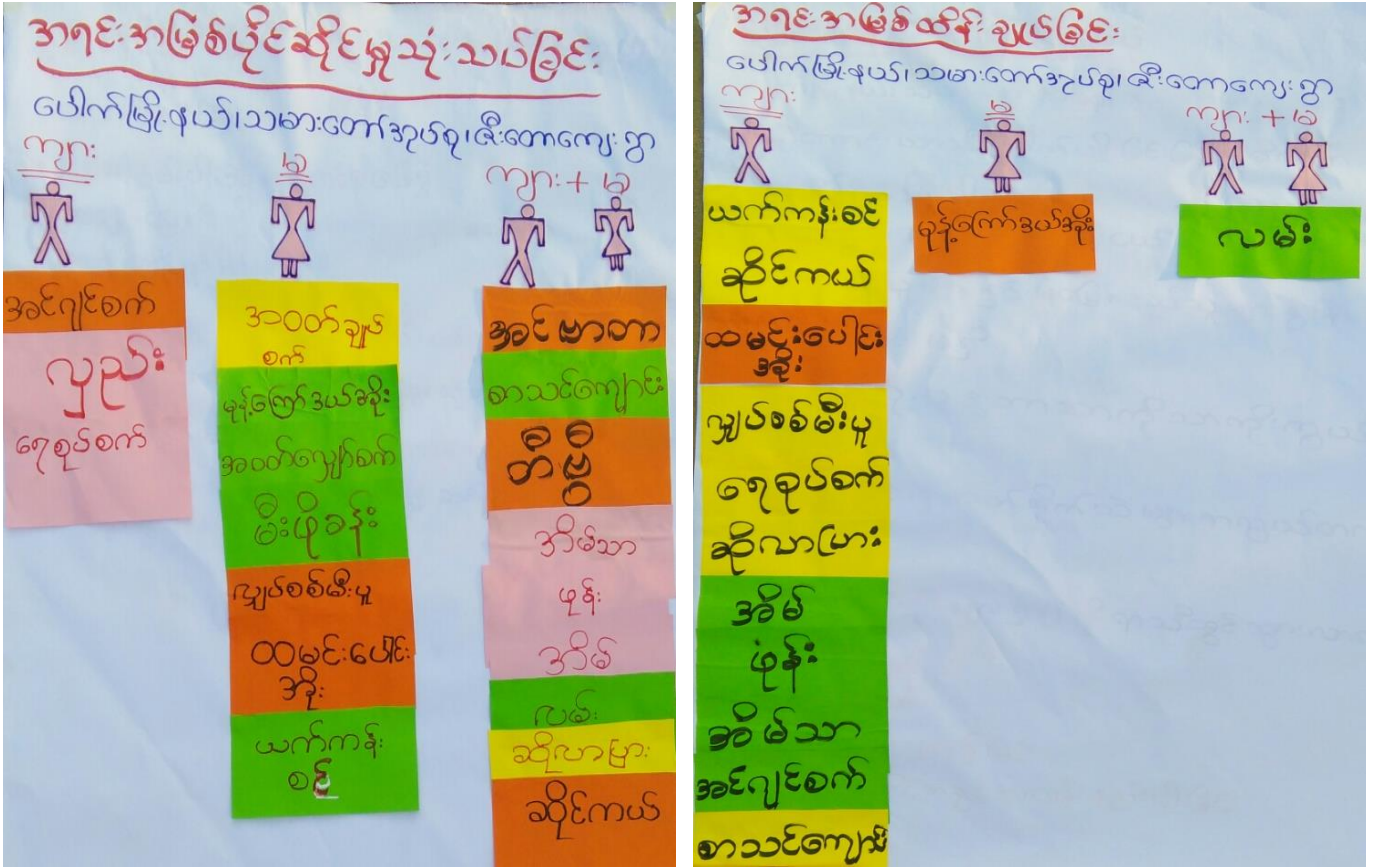 အရင်းအမြစ်ပိုင်ဆိုင်မှုသုံးသပ်ခြင်း
ပေါက်မြို့နယ်၊သမားတော်အုပ်စု၊ဇီးတောကျေးရွာ
ကျား
မ
ကျား + မ
အင်ဂျင်စက်
လှည်း
ရေစုပ်စက်
အဝတ်ချုပ်
စက်
မုန့်ကြော်ဒယ်အိုး
အဝတ်လျှော်စက်
မီးဖိုခန်း
လျှပ်စစ်မီးပူ
ထမင်းပေါင်း
အိုး
ယက်ကန်း
စင်
အင်ဗာတာ
စာသင်ကျောင်း
တီဗွီ
အိမ်သာ
ဖုန်း
အိမ်
လမ်း
ဆိုလာပြား
ဆိုင်ကယ်
အရင်းအမြစ်ထိန်းချုပ်ခြင်း
ပေါက်မြို့နယ်၊သမားတော်အုပ်စု၊ဇီးတောကျေးရွာ
ကျား
မ
ကျား + မ
ယက်ကန်းစင်
ဆိုင်ကယ်
ထမင်းပေါင်း
အိုး
လျှပ်စစ်မီးပူ
ရေစုပ်စက်
ဆိုလာပြား
အိမ်
ဖုန်း
အိမ်သာ
အင်ဂျင်စက်
စာသင်ကျောင်း
မုန့်ကြော်ဒယ်အိုး
လမ်း